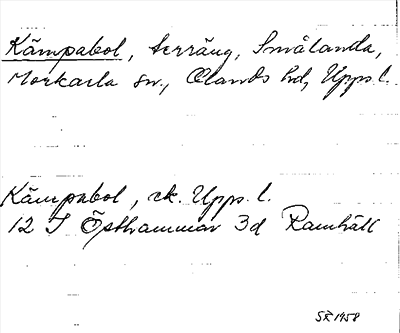 Kämpabol, terräng, Smålanda,
Morkarla sn., Olands hd, Upps. l.
Kämpabol, ek. Upps. l.
12 I Östhammar 3d Ramhäll
SR 1958